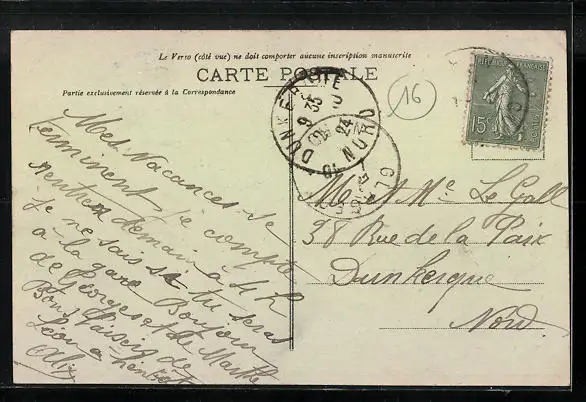 Le Verso (côté vue) ne doit comporter aucune inscription manuscrite
CARTE POSTALE
Partie exclusivement réservée à la Correspondance
16
RÉPUBLIQUE FRANÇAISE
15c
POSTES
DUNKERQUE
9 35
24
NORD
Mes Vacances se
terminent je compte
rentrer demain à 4 h
Je ne sais si tu seras
à la gare. Bonjour
de Georges et de Marthe
Bons baisers de
Léon a bientôt
M. et Me Le Gall
38 Rue de la Paix
Dunkerque
Nord